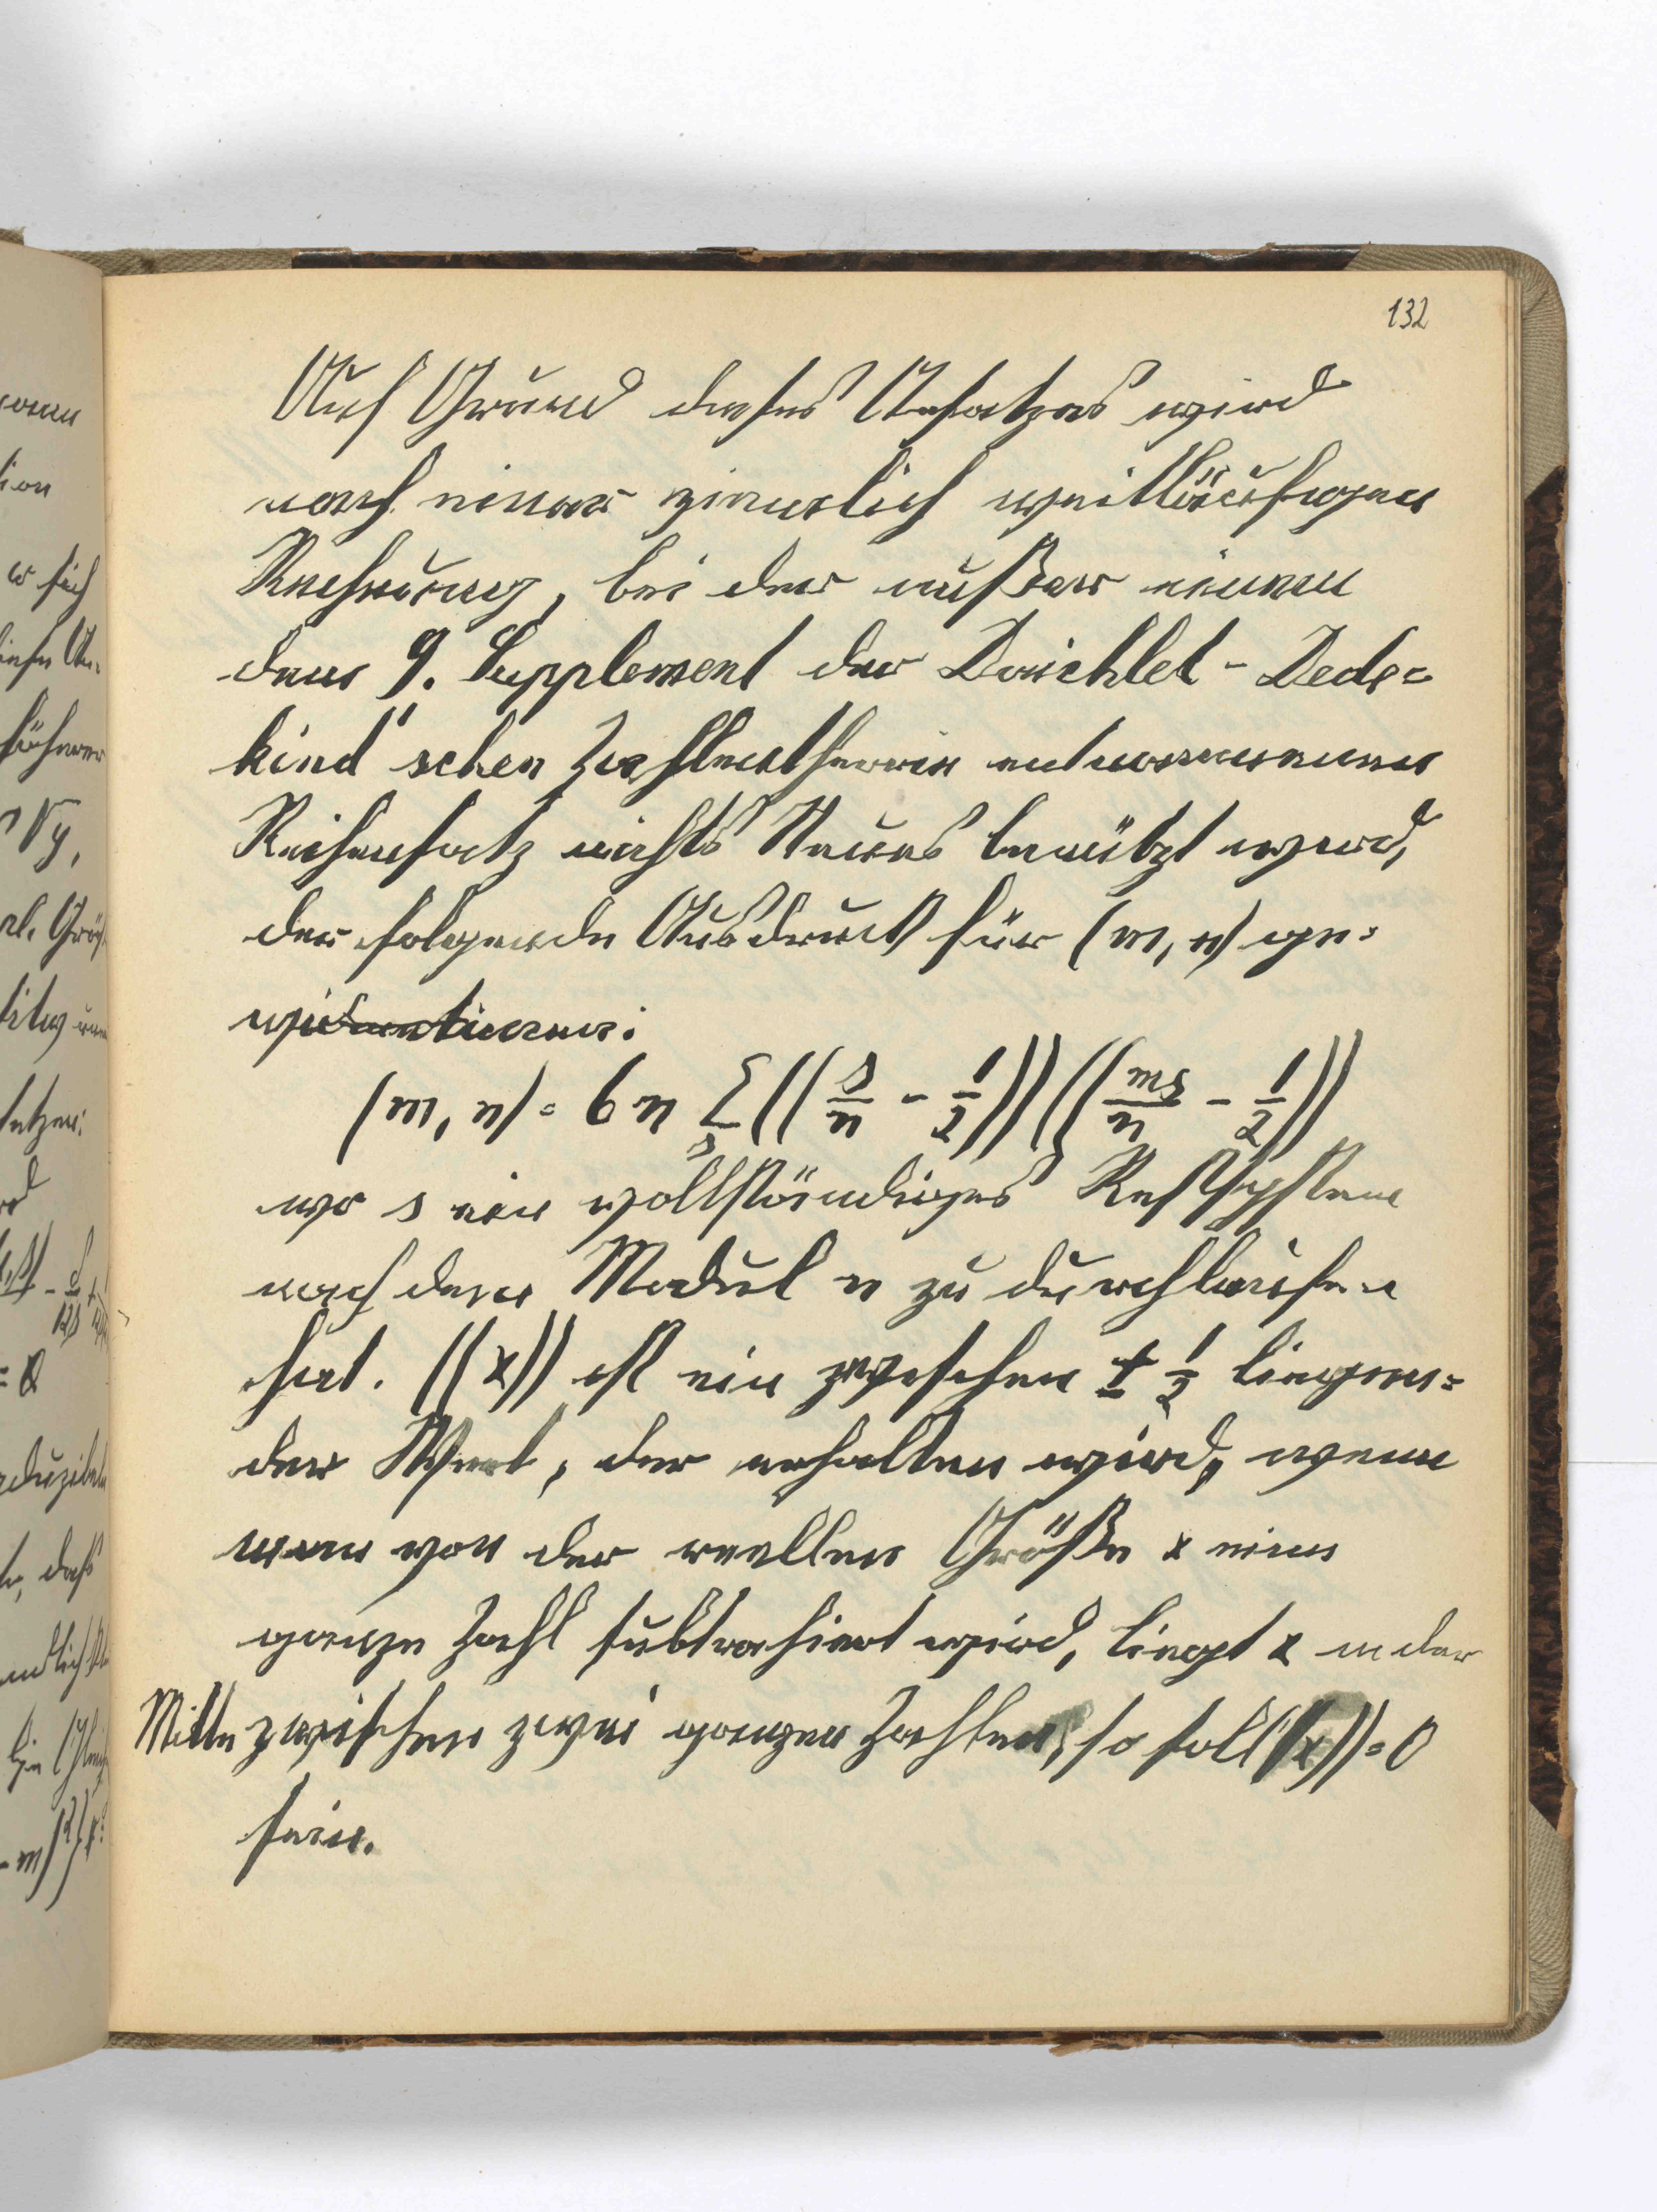 132
Auf Grund dieses Ansatzes wird
nach einer ziemlich weitläufigen
Rechnung, bei der außer einem
dem 9. Supplement der Dirichlet-Dede=
kind'schen Zahlentheorie entnommenen
Reihensatz nichts Neues benützt wird,
der folgende Ausdruck für (m, n) ge=
wonnen:
(m, n) = 6n Σ_s ((s/n - 1/2)) ((ms/n - 1/2))
wo s ein vollständiges Restsystem
nach dem Modul n zu durchlaufen
hat. ((x)) ist ein zwischen ± 1/2 liegen=
der Wert, der erhalten wird, wenn
man von der reellen Größe x eine
ganze Zahl subtrahiert wird, liegt x in der
Mitte zwischen zwei ganzen Zahlen, so soll ((x)) = 0
sein.